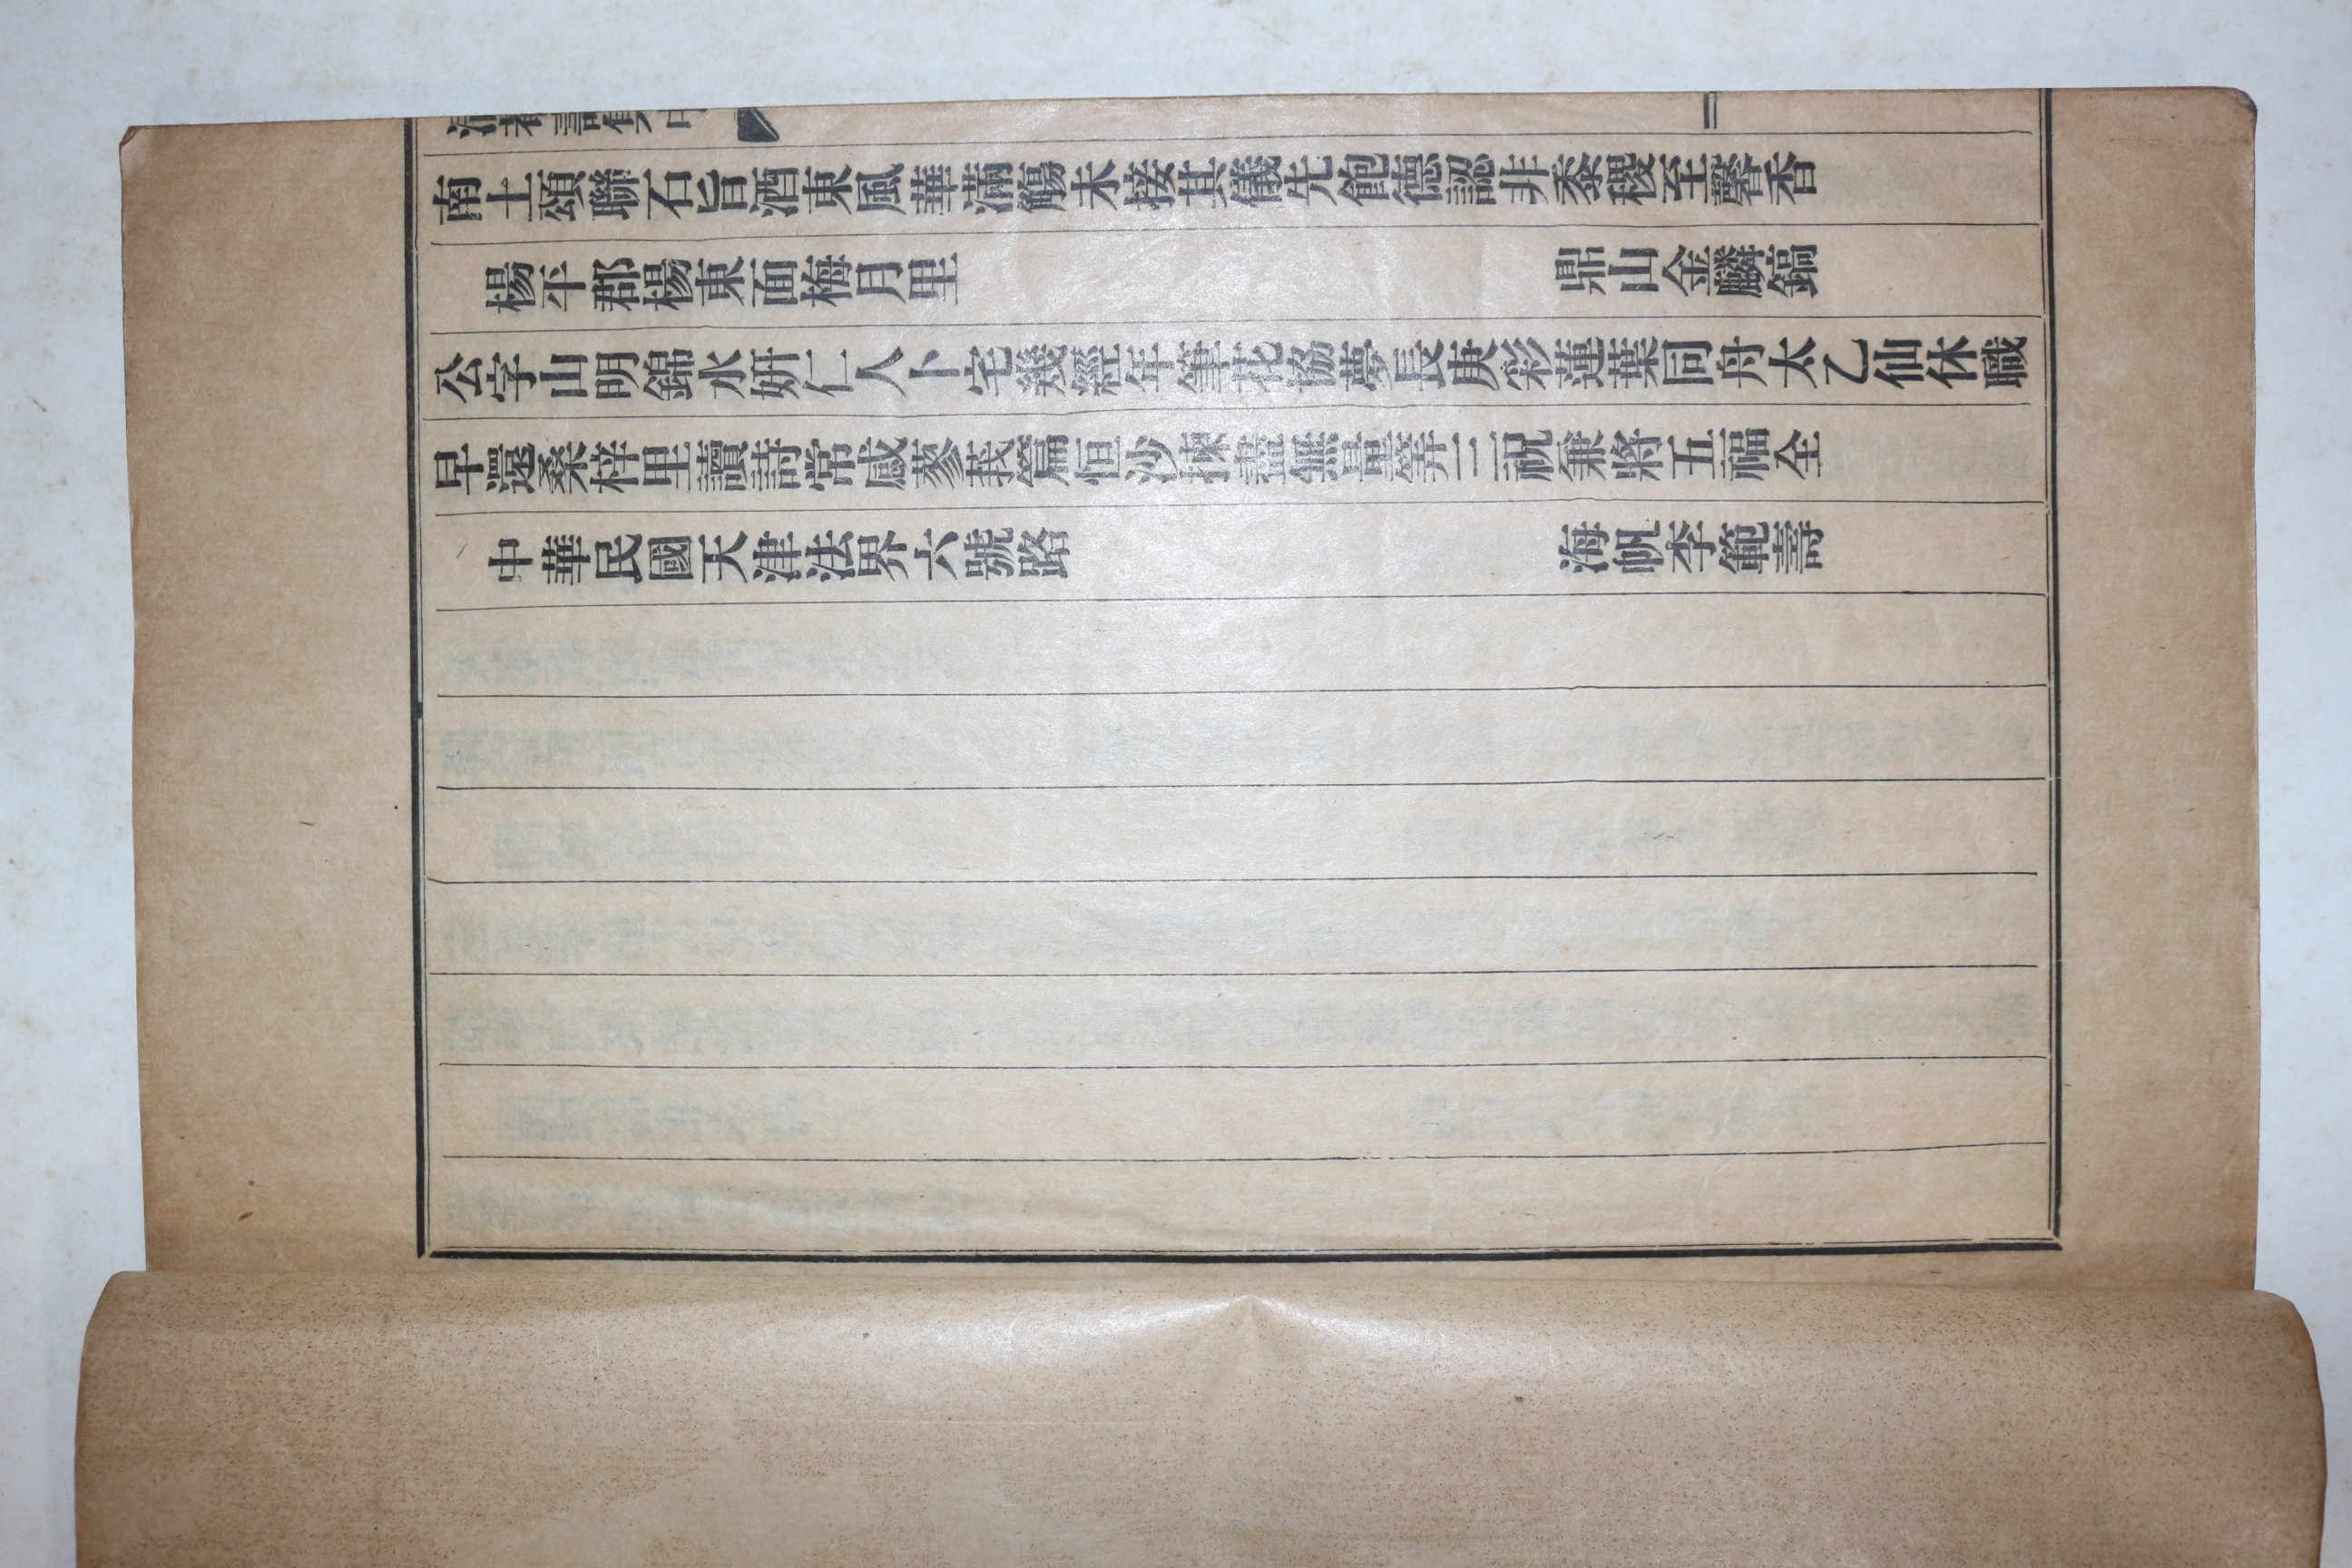 南土頌聯石旨酒東風華滿觴未接其儀先飽德認非黍稷至馨香
楊平郡楊東面梅月里 鼎山金麟鎬
公字山明錦水妍仁人卜宅幾經年筆花協夢長庚彩蓮葉同舟太乙仙休職
早還桑梓里讀詩常感蓼莪篇恒沙揀盡無量筭三祝兼將五福全
中華民國天津法界六號路 海帆李範壽